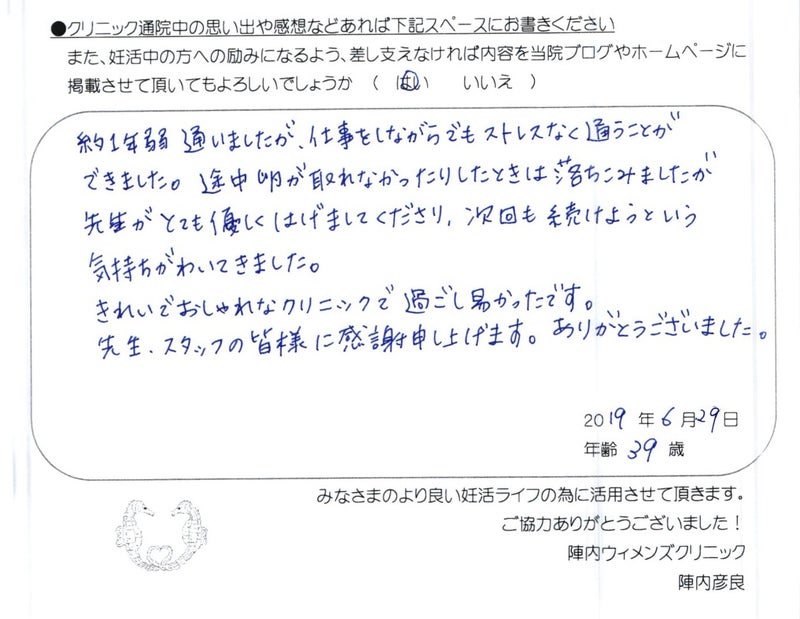 ●クリニック通院中の思い出や感想などあれば下記スペースにお書きください
また、妊活中の方への励みになるよう、差し支えなければ内容を当院ブログやホームページに
掲載させて頂いてもよろしいでしょうか （ はい いいえ ）
約1年弱 通いましたが、仕事をしながらでもストレスなく通うことが
できました。途中卵が取れなかったりしたときは落ちこみましたが
先生がとても優しくはげましてくださり、次回も続けようという
気持ちがわいてきました。
きれいでおしゃれなクリニックで過ごし易かったです。
先生、スタッフの皆様に感謝申し上げます。ありがとうございました。
2019 年 6 月 29 日
年齢 39 歳
みなさまのより良い妊活ライフの為に活用させて頂きます。
ご協力ありがとうございました！
陣内ウィメンズクリニック
陣内彦良